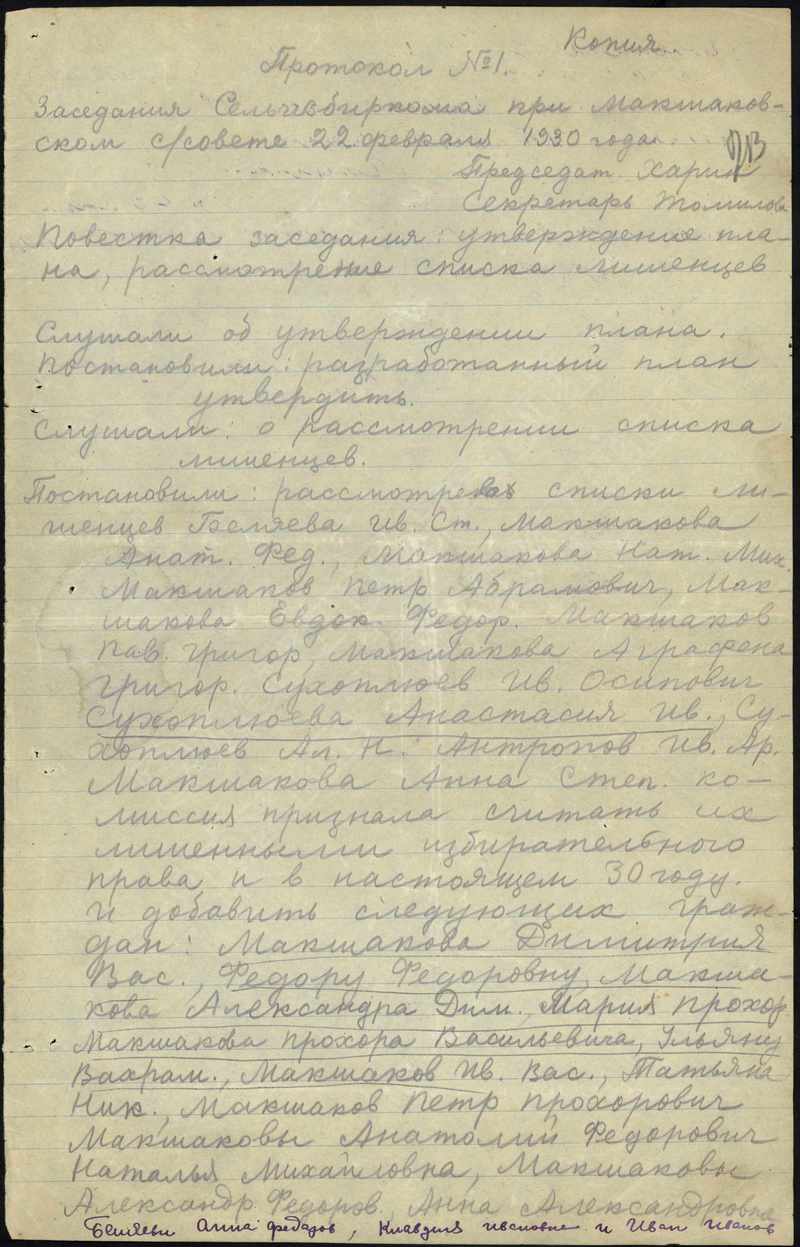 Копия.
Протокол №1.
Заседания Сельизбиркома при Макшаков-
ском с/совете 22 февраля 1930 года.
Председат. Харин
Секретарь Томилова
Повестка заседания: утверждение пла-
на, рассмотрение списка лишенцев
Слушали об утверждении плана.
Постановили: разработанный план
утвердить.
Слушали: о рассмотрении списка
лишенцев.
Постановили: рассмотрев списки ли-
шенцев Беляева Ив. Ст., Макшакова
Анат. Фед., Макшакова Нат. Мих.
Макшаков Петр Абрамович, Мак-
шакова Евдок. Федор. Макшаков
Пав. Григор, Макшакова Аграфена
Григор. Сухоплюев Ив. Осипович
Сухоплюева Анастасия Ив., Су-
хоплюев Ал. Н. Антропов Ив. Ар.
Макшакова Анна Степ. ко-
миссия признала считать их
лишенными избирательного
права и в настоящем 30 году.
и добавить следующих граж-
дан: Макшакова Димитрия
Вас., Федору Федоровну, Макша-
кова Александра Дим., Мария Прохор
Макшакова Прохора Васильевича, Ульяну
Вахрам., Макшаков Ив. Вас., Татьяна
Ник., Макшаков Петр Прохорович
Макшаковы Анатолий Федорович
Наталья Михайловна, Макшаковы
Александр Федоров, Анна Александровна
Беляевы Анна Федоров, Клавдия Ивановна и Иван Иванов